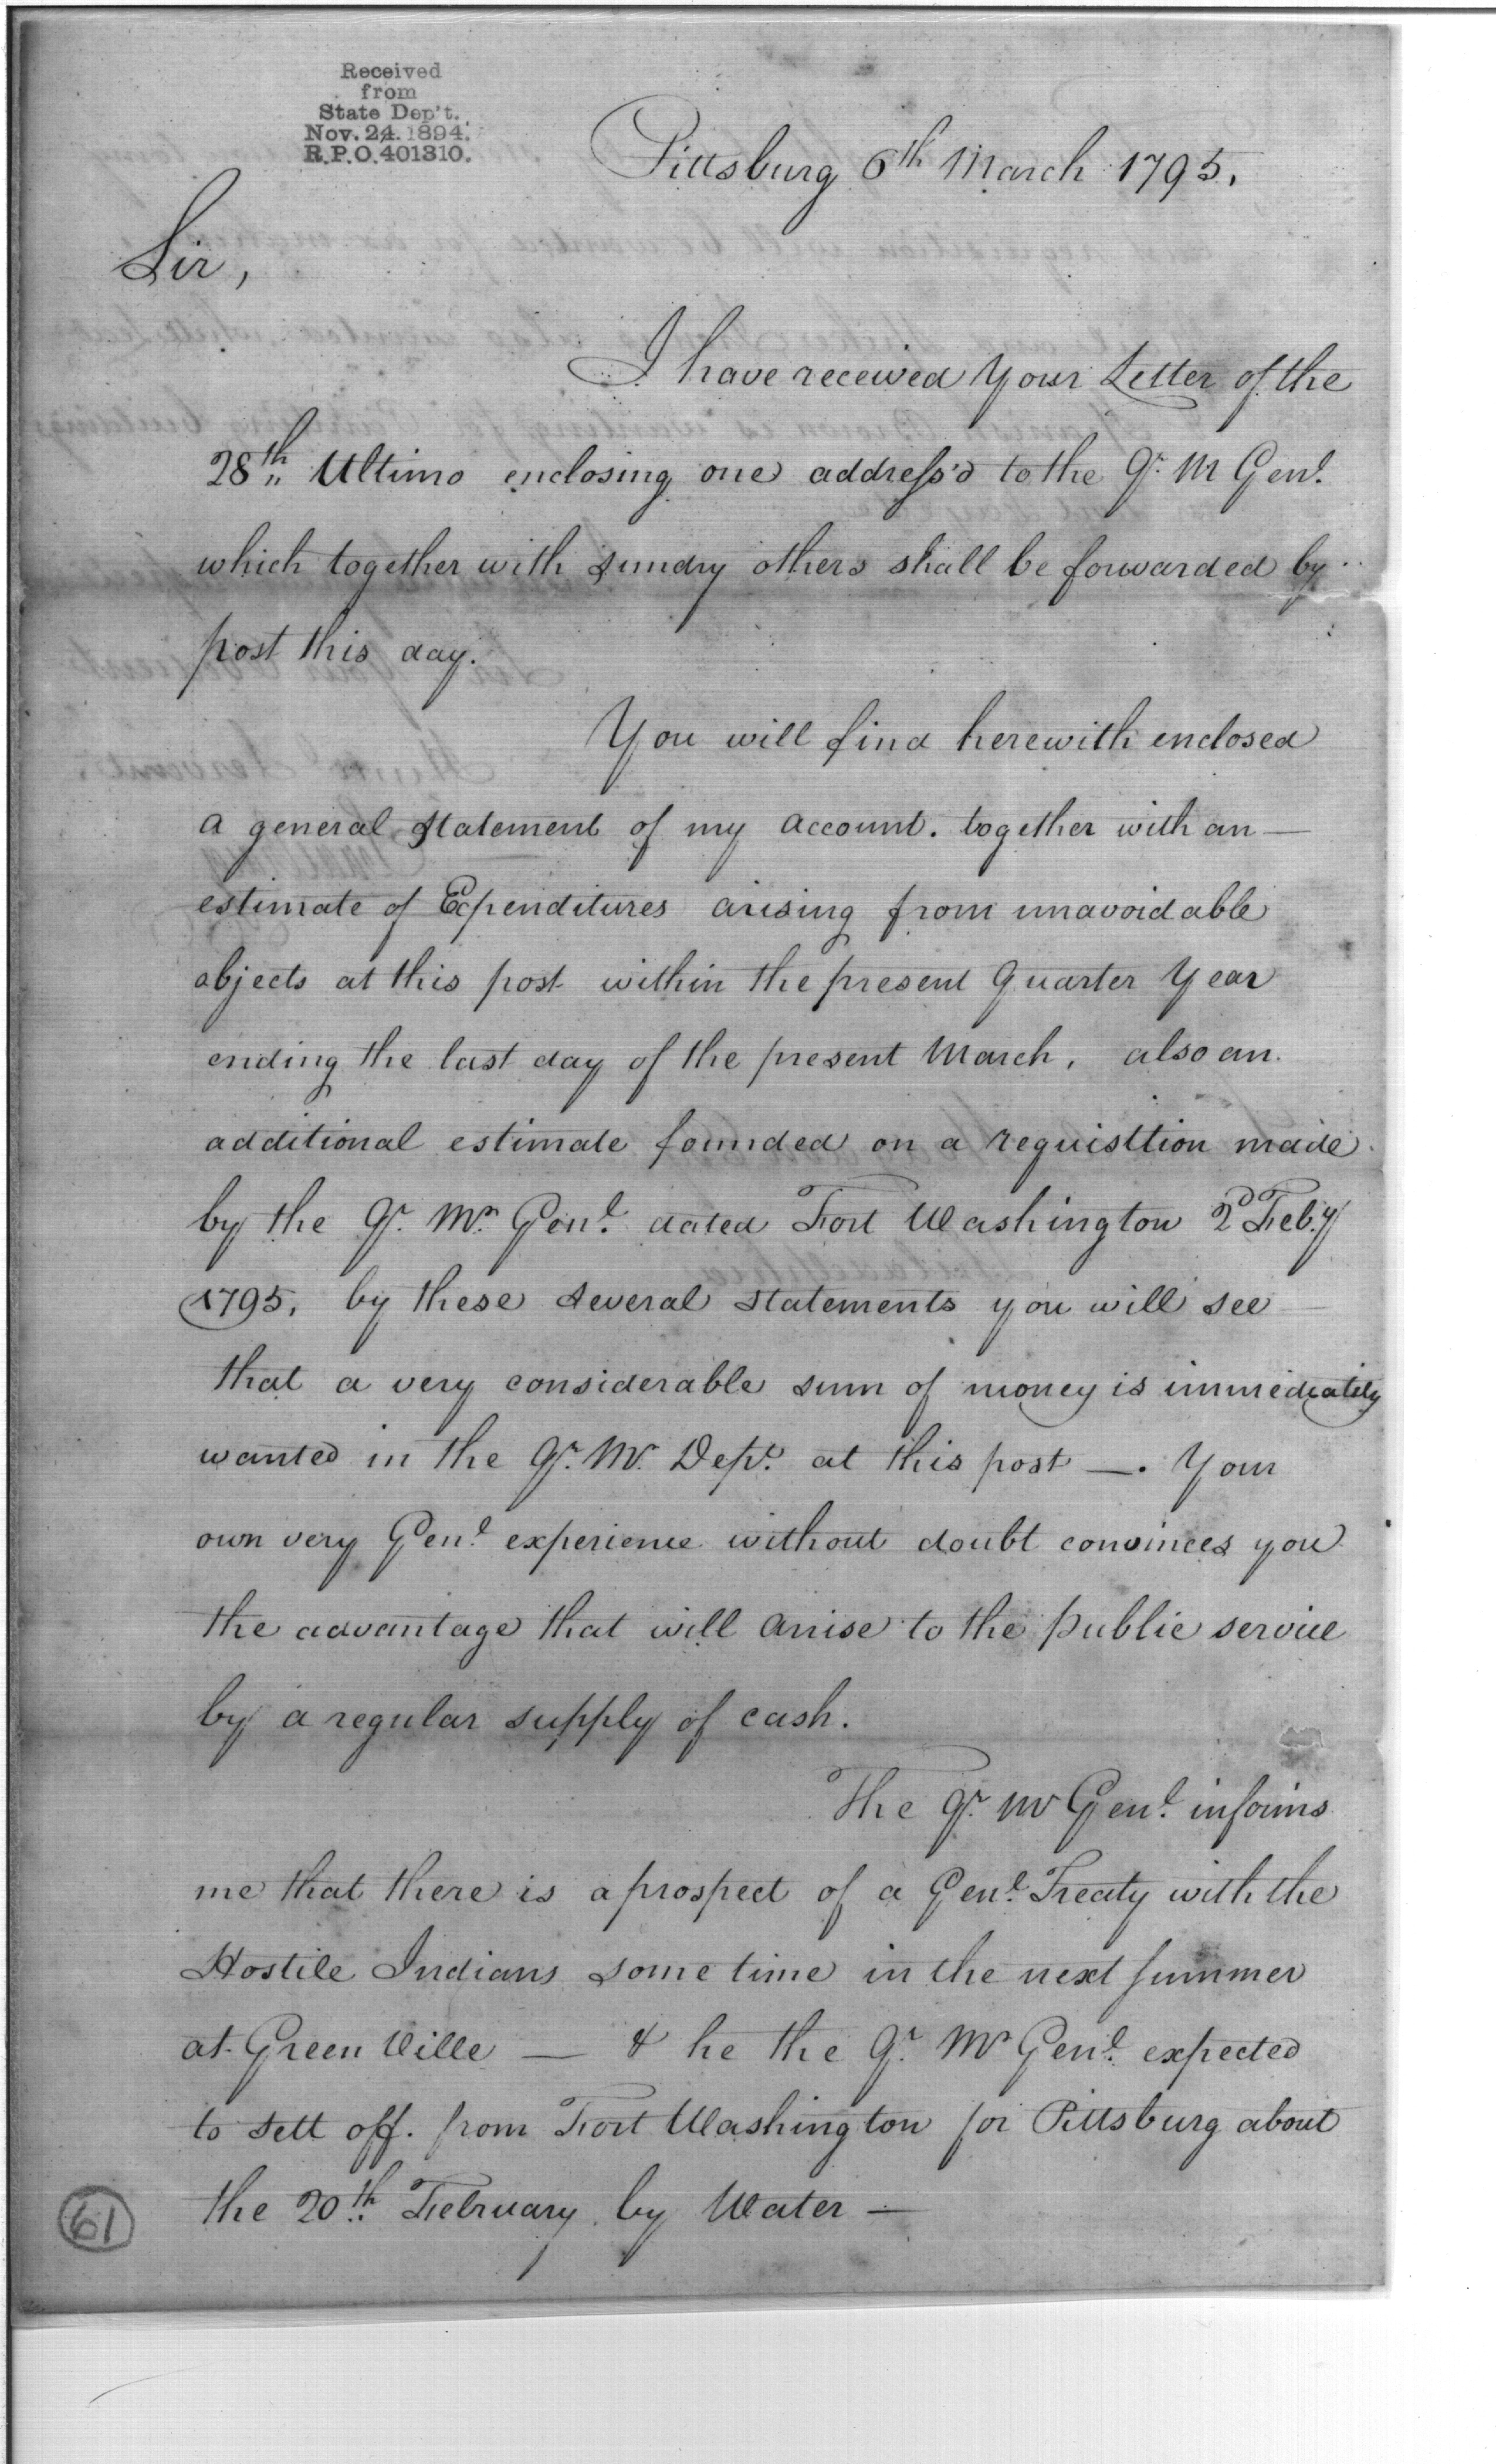 Received
from
State Dep't.
Nov. 24. 1894.
R.P.O. 401310.
Pittsburg 6th March 1795.
Sir,
I have received Your Letter of the
28th Ultimo enclosing one address'd to the Qr. M Genl.
which together with sundry others shall be forwarded by
post this day.
You will find herewith enclosed
a general statement of my account. together with an —
estimate of Expenditures arising from unavoidable
objects at this post within the present Quarter Year
ending the last day of the present March, also an
additional estimate founded on a requisttion made
by the Qr. Mr. Genl. dated Fort Washington 2d Feby
1795, by these several statements you will see
that a very considerable sum of money is immediately
wanted in the Qr. Mr. Dept. at this post —. Your
own very Genl. experience without doubt convinces you
the advantage that will arise to the public service
by a regular supply of cash.
The Qr. Mr Genl. informs
me that there is a prospect of a Genl. Treaty with the
Hostile Indians some time in the next summer
at Green Ville — & he the Qr. Mr Genl. expected
to sett off. from Fort Washington for Pittsburg about
the 20th. February by Water —
61